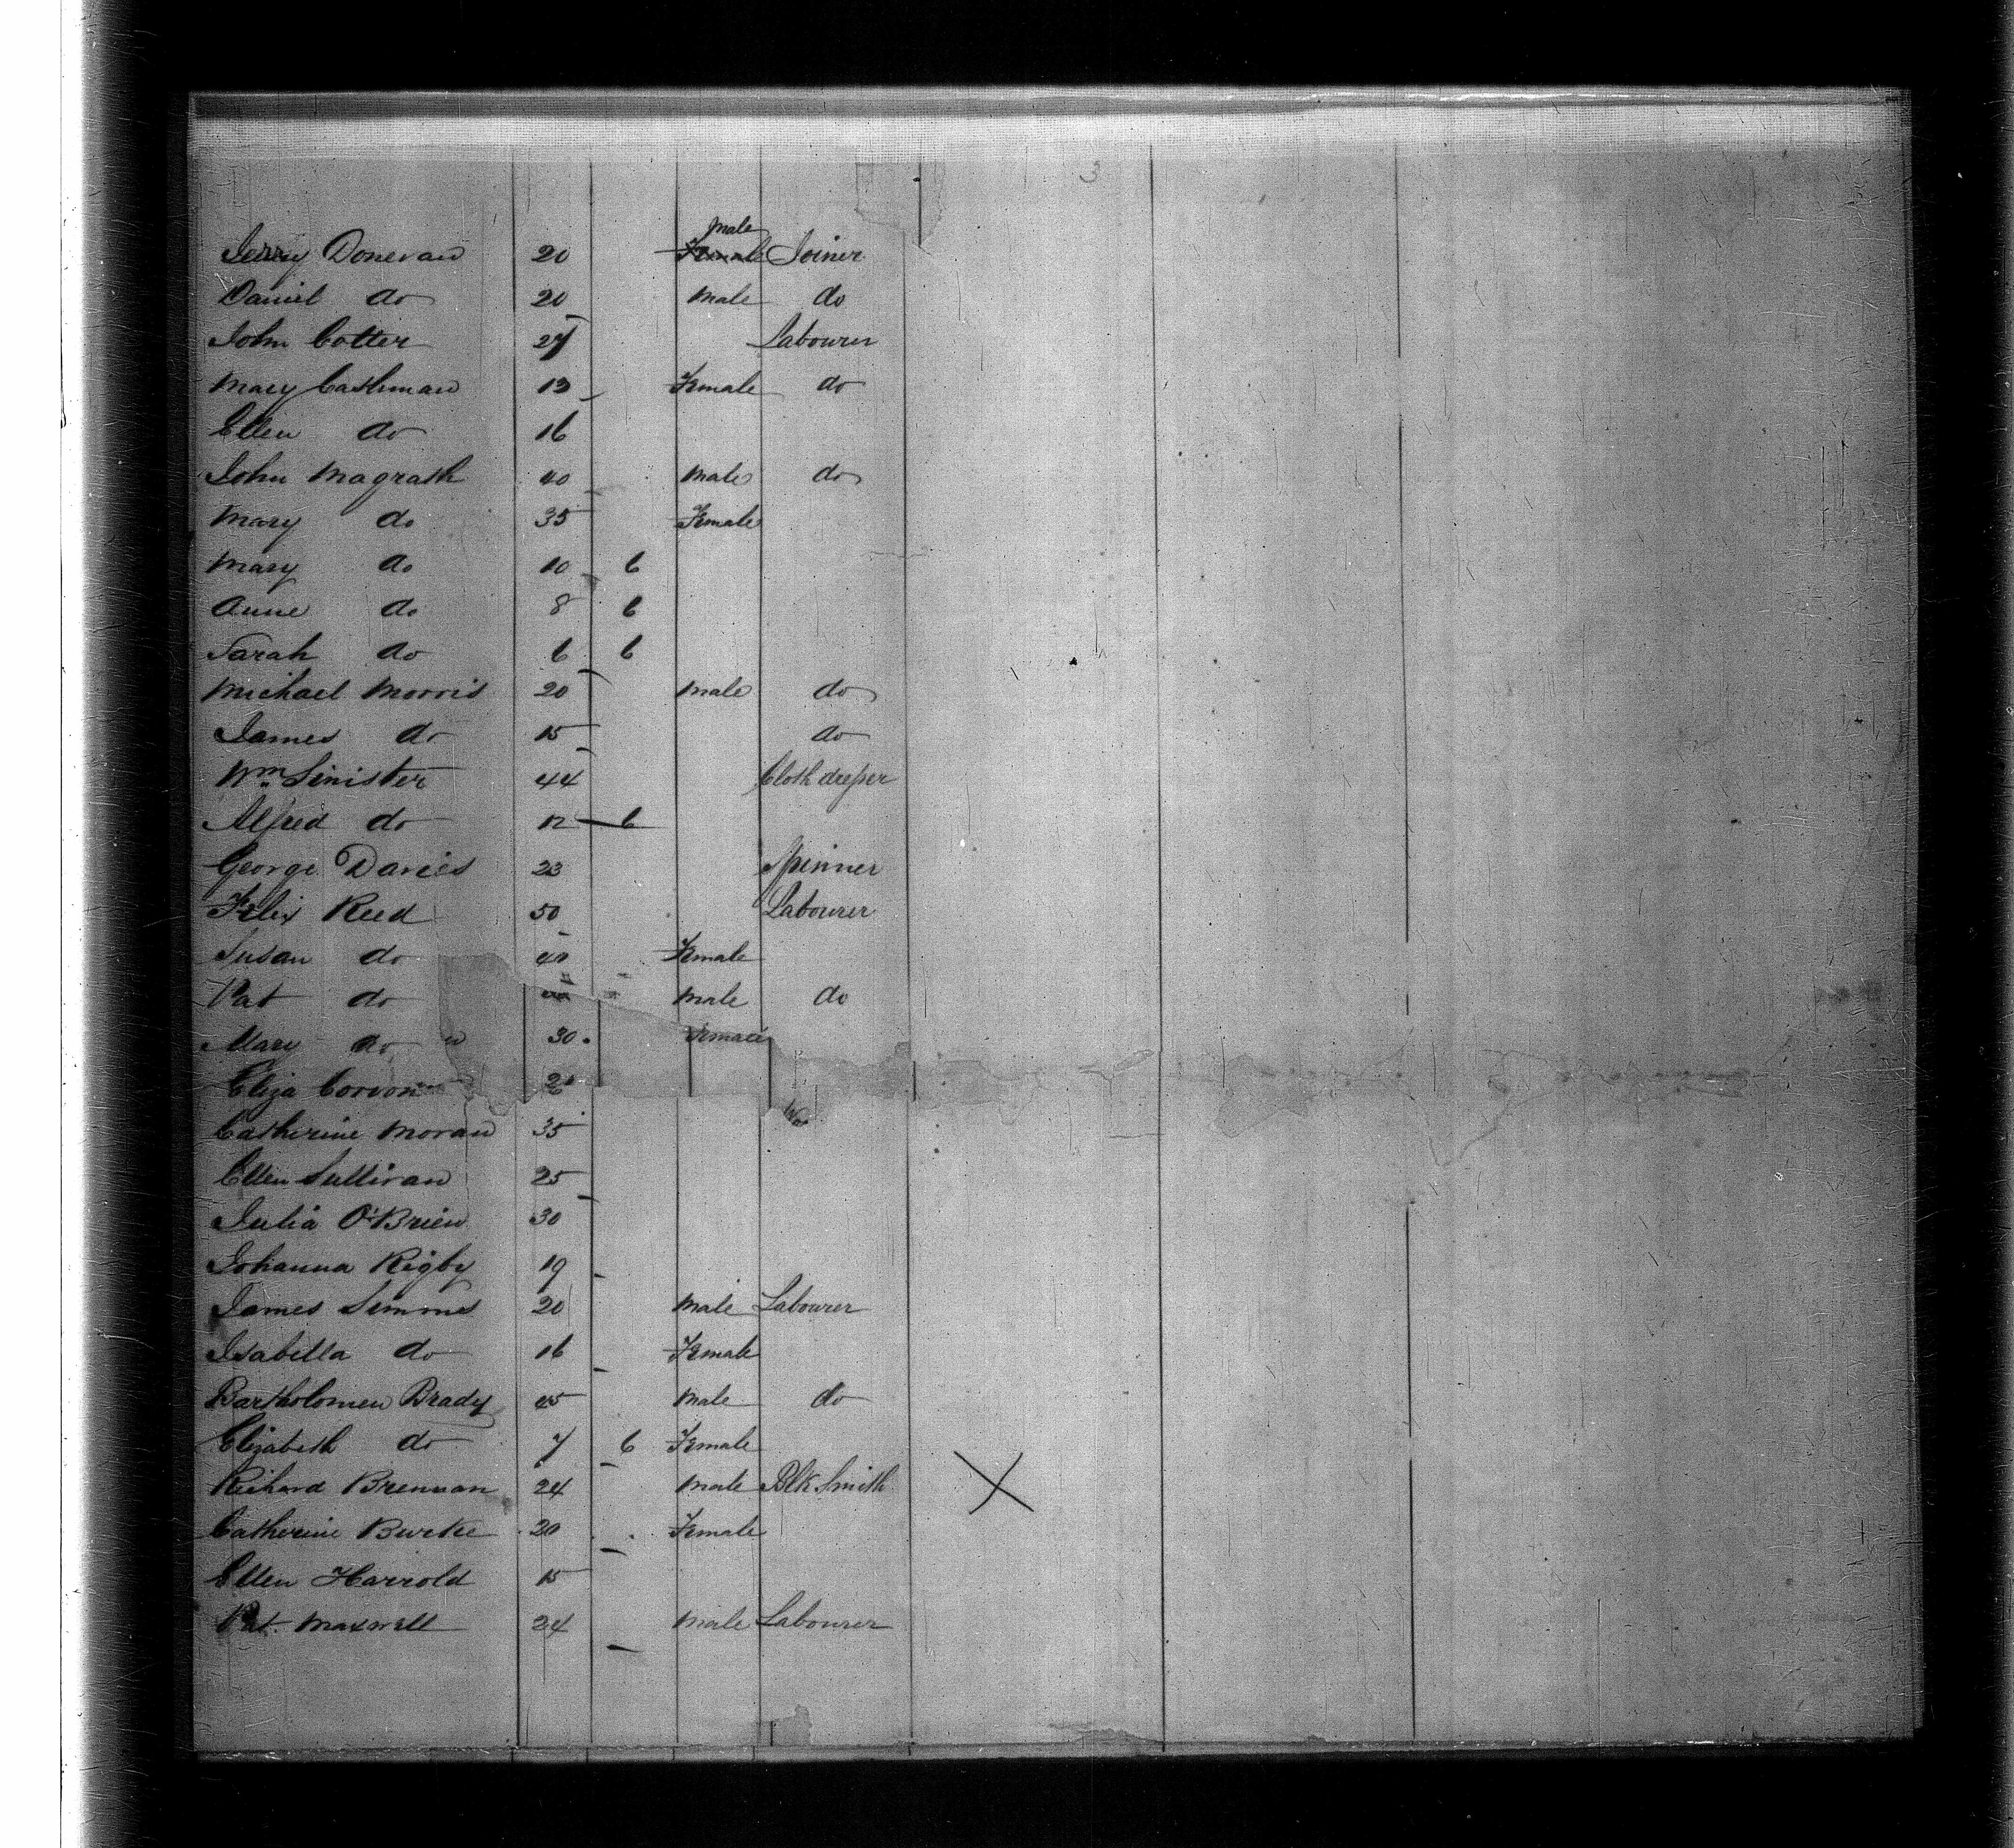 3
male
Jerry Donevan 20 Female Joiner
Daniel do 20 male do
John Cotter 27 Labourer
Mary Cashman 13 Female do
Ellen do 16
John Magrath 40 male do
Mary do 35 Female
Mary do 10 6
Anne do 8 6
Sarah do 6 6
Michael Morris 20 male do
James do 15 do
Wm Sinister 44 Cloth
Alfred do 12 6
George Davies 23 Spinner
Felix Reed 50 Labourer
Susan do 40 Female
Pat do male do
Mary do 30 Female
Eliza
Catherine Moran 35
Ellen Sullivan 25
Julia O'Brien 30
Johanna Rigby 19
James Simms 20 male Labourer
Isabella do 16 Female
Bartholomew Brady 45 male do
Elizabeth do 7 6 Female
Richard Brennan 24 male Blk Smith X
Catherine Burke 20 Female
Ellen Harrold 15
Pat. Maxwell 24 male Labourer